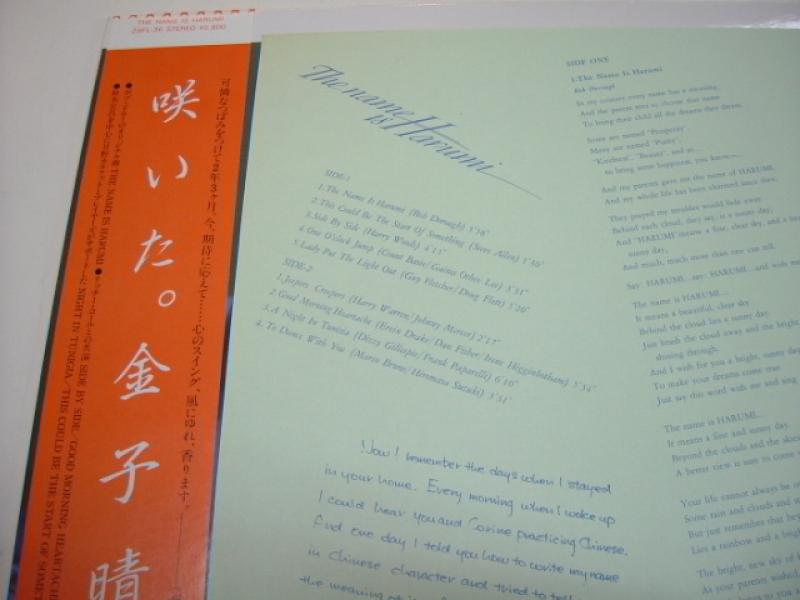 THE NAME IS HARUMI
28FL-36 STEREO ¥2,800
咲いた。金子晴
可憐なつぼみをつけて2年3ヶ月。今、期待に応えて……心のスイング、風にゆれ、香ります。
THE NAME IS HARUMI
SIDE BY SIDE/GOOD MORNING HEARTACHE
NIGHT IN TUNIGIA/THIS COULD BE THE START OF SOME
The name
is Harumi
SIDE-1
1. The Name Is Harumi (Bob Dorough) 5'18"
2. This Could Be The Start Of Something (Steve Allen) 1'50"
3. Side By Side (Harry Woods) 4'11"
4. One O'clock Jump (Count Basie/Guinea Oshee Lee) 5'51"
5. Lady Put The Light Out (Guy Fletcher/Doug Flett) 5'20"
SIDE-2
1. Jeepers Creepers (Harry Warren/Johnny Mercer) 2'17"
2. Good Morning Heartache (Ervin Drake/Dan Fisher/Irene Higginbotham) 5'34"
3. A Night In Tunisia (Dizzy Gillespie/Frank Paparelli) 6'10"
4. To Dance With You (Marco Bruno/Hiromasa Suzuki) 3'51"
Now I remember the days when I stayed
in your home. Every morning when I woke up
I could hear you and Corine practicing Chinese.
And one day I told you how to write my name
in Chinese character and tried to tell
the meaning of
SIDE ONE
1. The Name Is Harumi
Bob Dorough
In my country every name has a meaning,
And the parent tries to choose that name
To bring their child all the dreams they dream.
Some are named "Prosperity",
Many are named "Purity",
"Kindness", "Beauty", and so...
to bring some happiness, you know...
And my parents gave me the name of HARUMI,
And my whole life has been charmed since then.
They prayed my troubles would fade away.
Behind each cloud, they say, is a sunny day,
And "HARUMI" means a fine, clear sky, and a
sunny day,
And much, much more than one can tell.
Say: HARUMI...say: HARUMI...and wish me
The name is HARUMI...
It means a beautiful, clear sky.
Behind the cloud lies a sunny day.
Just brush the cloud away and the bright
shining through.
And I wish for you a bright, sunny day
To make your dreams come true.
Just say this word with me and sing
The name is HARUMI...
It means a fine and sunny day.
Beyond the clouds and the skies
A better view is sure to come
Your life cannot always be
Some rain and clouds and
But just remember that
Lies a rainbow and a
The bright, new sky of
As your parents wished